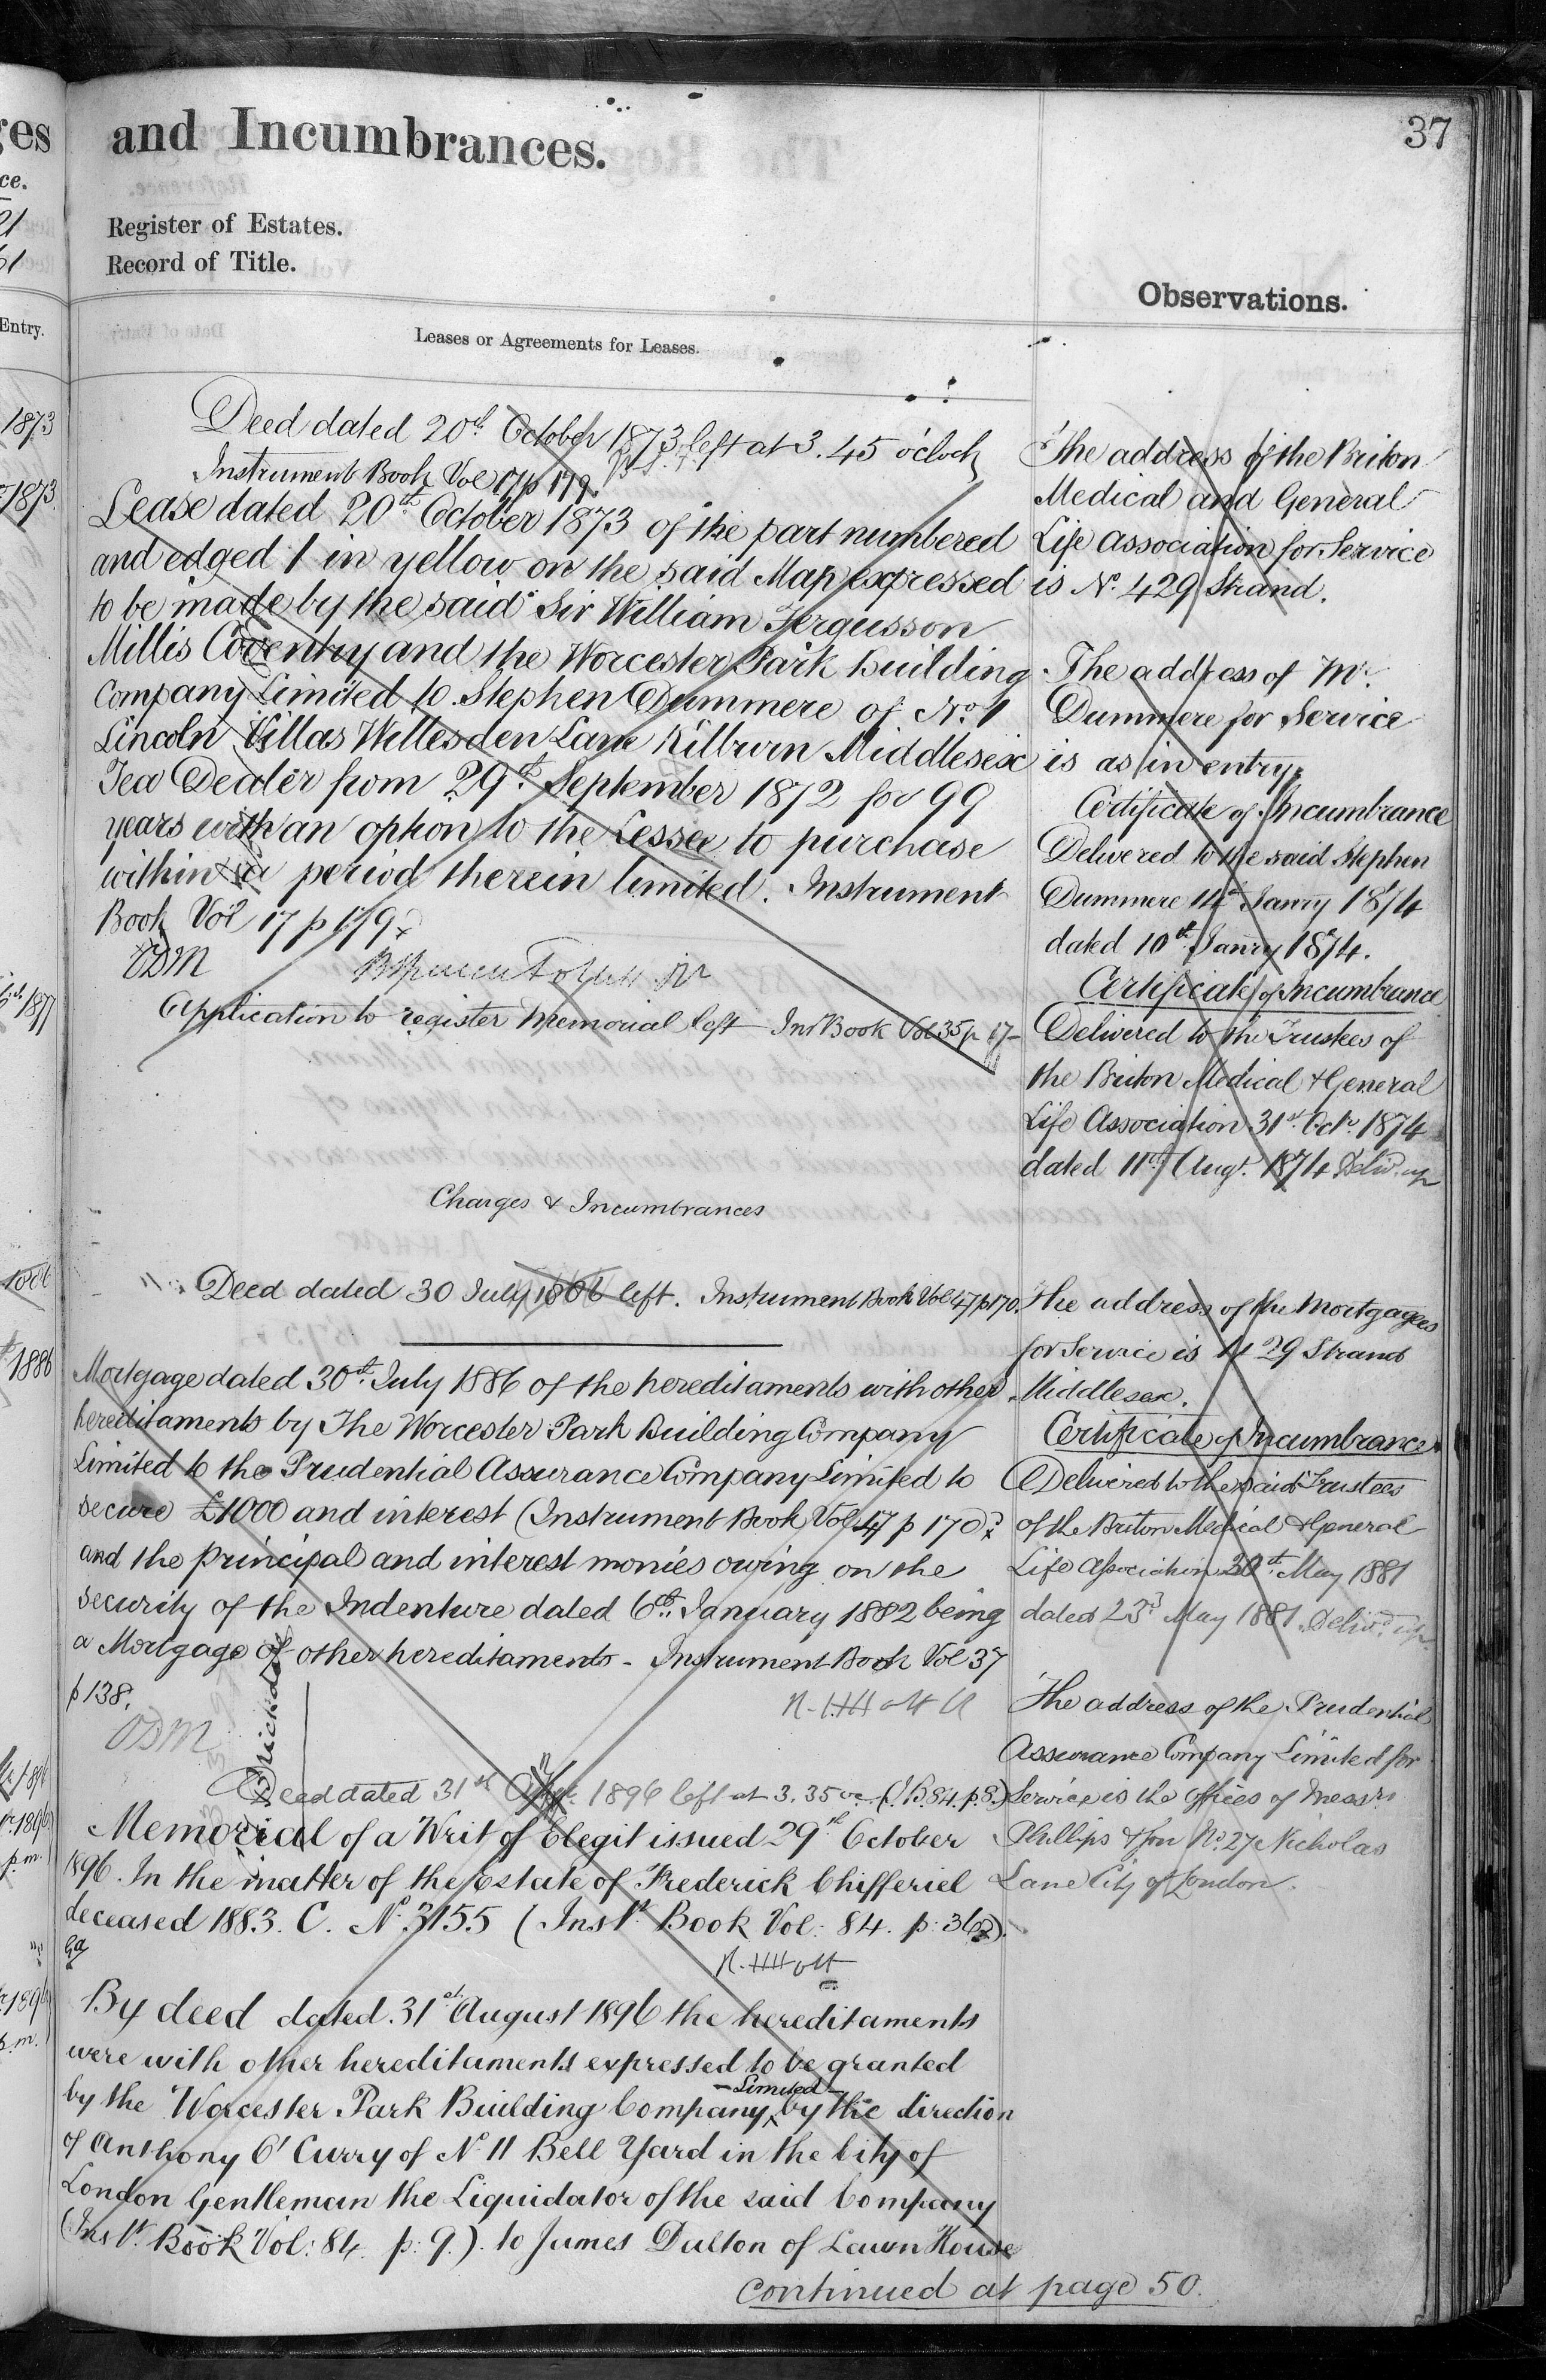 ges
ce.
21
61
Entry.
1873
1873.
1877
1886
1886
1896
p.m.
1896
p.m.
and Incumbrances.
37
Register of Estates.
Record of Title.
Leases or Agreements for Leases.
Deed dated 20th October 1873 left at 3.45 o'clock
Instrument Book Vol 17 p 179.
Lease dated 20th October 1873 of the part numbered
and edged 1 in yellow on the said Map expressed
to be made by the said Sir William Fergusson
Millis Coventry and the Worcester Park Building
Company Limited to Stephen Dummere of No 1
Lincoln Villas Willesden Lane Kilburn Middlesex
Tea Dealer from 29th September 1872 for 99
years with an option to the Lessee to purchase
within a period therein limited. Instrument
Book Vol 17 p 179
ODM
Application to register Memorial left Inst Book Vol 35 p 17
Charges & Incumbrances
Deed dated 30 July 1886 left. Instrument Book Vol 47 p 170.
Mortgage dated 30th July 1886 of the hereditaments with other
hereditaments by The Worcester Park Building Company
Limited to the Prudential Assurance Company Limited to
secure £1000 and interest (Instrument Book Vol 47 p 170)
and the principal and interest monies owing on the
security of the Indenture dated 6th January 1882 being
a Mortgage of other hereditaments - Instrument Book Vol 37
p 138.
ODM
Deed dated 31st 1896 left at 3.35 (I.B. 84. p. 8.)
Memorial of a Writ of Elegit issued 29th October
1896. In the matter of the Estate of Frederick Chifferiel
deceased 1883. C. No 3155 (Inst Book Vol: 84. p: 362).
By deed dated 31st August 1896 the hereditaments
were with other hereditaments expressed to be granted
by the Worcester Park Building Company Limited by the direction
of Anthony O'Curry of No 11 Bell Yard in the City of
London Gentleman the Liquidator of the said Company
(Inst Book Vol: 84. p: 9.). to James Dalton of Lawn House
continued at page 50.
Observations.
The address of the Briton
Medical and General
Life Association for Service
is No. 429 Strand.
The address of Mr.
Dummere for Service
is as in entry.
Certificate of Incumbrance
Delivered to the said Stephen
Dummere 14th Janry 1874
dated 10th Janry 1874.
Certificate of Incumbrance
Delivered to the Trustees of
the Briton Medical & General
Life Association 31st Octr. 1874
dated 11th Augt. 1874 Delivd. up
The address of the Mortgagees
for Service is 429 Strand
Middlesex.
Certificate of Incumbrance
Delivered to the said Trustees
of the Briton Medical & General
Life Association 30th May 1881
dated 23rd May 1881. Delivd. up
The address of the Prudential
Assurance Company Limited for
Service is the offices of Messrs
Phillips & Son No. 27 Nicholas
Lane City of London.